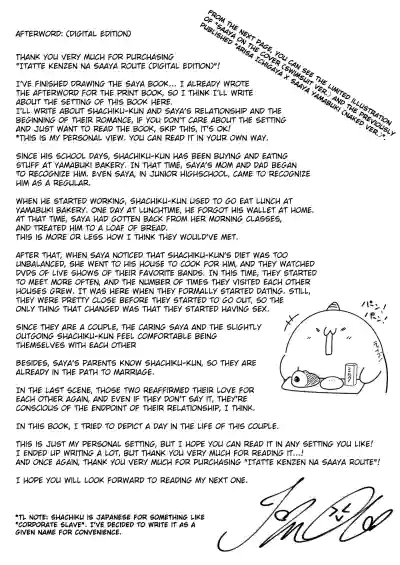 AFTERWORD: (DIGITAL EDITION)
FROM THE NEXT PAGE, YOU CAN SEE THE LIMITED ILLUSTRATION
OF "SAAYA ON THE COVER (SWIMSUIT VER.) AND THE PREVIOUSLY
PUBLISHED "ARISA ICHIGAYA X SAAYA YAMABUKI (NAKED VER.)".
THANK YOU VERY MUCH FOR PURCHASING
"ITATTE KENZEN NA SAAYA ROUTE (DIGITAL EDITION)"!
I'VE FINISHED DRAWING THE SAYA BOOK... I ALREADY WROTE
THE AFTERWORD FOR THE PRINT BOOK, SO I THINK I'LL WRITE
ABOUT THE SETTING OF THIS BOOK HERE.
I'LL WRITE ABOUT SHACHIKU-KUN AND SAAYA'S RELATIONSHIP AND THE
BEGINNING OF THEIR ROMANCE, IF YOU DON'T CARE ABOUT THE SETTING
AND JUST WANT TO READ THE BOOK, SKIP THIS, IT'S OK!
*THIS IS MY PERSONAL VIEW. YOU CAN READ IT IN YOUR OWN WAY.
SINCE HIS SCHOOL DAYS, SHACHIKU-KUN HAS BEEN BUYING AND EATING
STUFF AT YAMABUKI BAKERY. IN THAT TIME, SAYA'S MOM AND DAD BEGAN
TO RECOGNIZE HIM. EVEN SAYA, IN JUNIOR HIGHSCHOOL, CAME TO RECOGNIZE
HIM AS A REGULAR.
WHEN HE STARTED WORKING, SHACHIKU-KUN USED TO GO EAT LUNCH AT
YAMABUKI BAKERY. ONE DAY AT LUNCHTIME, HE FORGOT HIS WALLET AT HOME.
AT THAT TIME, SAYA HAD GOTTEN BACK FROM HER MORNING CLASSES,
AND TREATED HIM TO A LOAF OF BREAD.
THIS IS MORE OR LESS HOW I THINK THEY WOULD'VE MET.
AFTER THAT, WHEN SAYA NOTICED THAT SHACHIKU-KUN'S DIET WAS TOO
UNBALANCED, SHE WENT TO HIS HOUSE TO COOK FOR HIM, AND THEY WATCHED
DVDS OF LIVE SHOWS OF THEIR FAVORITE BANDS. IN THIS TIME, THEY STARTED
TO MEET MORE OFTEN, AND THE NUMBER OF TIMES THEY VISITED EACH OTHER
HOUSES GREW. IT WAS HERE WHEN THEY FORMALLY STARTED DATING. STILL,
THEY WERE PRETTY CLOSE BEFORE THEY STARTED TO GO OUT, SO THE
ONLY THING THAT CHANGED WAS THAT THEY STARTED HAVING SEX.
SINCE THEY ARE A COUPLE, THE CARING SAYA AND THE SLIGHTLY
OUTGOING SHACHIKU-KUN FEEL COMFORTABLE BEING
THEMSELVES WITH EACH OTHER
BESIDES, SAYA'S PARENTS KNOW SHACHIKU-KUN, SO THEY ARE
ALREADY IN THE PATH TO MARRIAGE.
IN THE LAST SCENE, THOSE TWO REAFFIRMED THEIR LOVE FOR
EACH OTHER AGAIN, AND EVEN IF THEY DON'T SAY IT, THEY'RE
CONSCIOUS OF THE ENDPOINT OF THEIR RELATIONSHIP, I THINK.
IN THIS BOOK, I TRIED TO DEPICT A DAY IN THE LIFE OF THIS COUPLE.
THIS IS JUST MY PERSONAL SETTING, BUT I HOPE YOU CAN READ IT IN ANY SETTING YOU LIKE!
I ENDED UP WRITING A LOT, BUT THANK YOU VERY MUCH FOR READING IT...!
AND ONCE AGAIN, THANK YOU VERY MUCH FOR PURCHASING "ITATTE KENZEN NA SAAYA ROUTE"!
I HOPE YOU WILL LOOK FORWARD TO READING MY NEXT ONE.
*TL NOTE: SHACHIKU IS JAPANESE FOR SOMETHING LIKE
"CORPORATE SLAVE". I'VE DECIDED TO WRITE IT AS A
GIVEN NAME FOR CONVENIENCE.